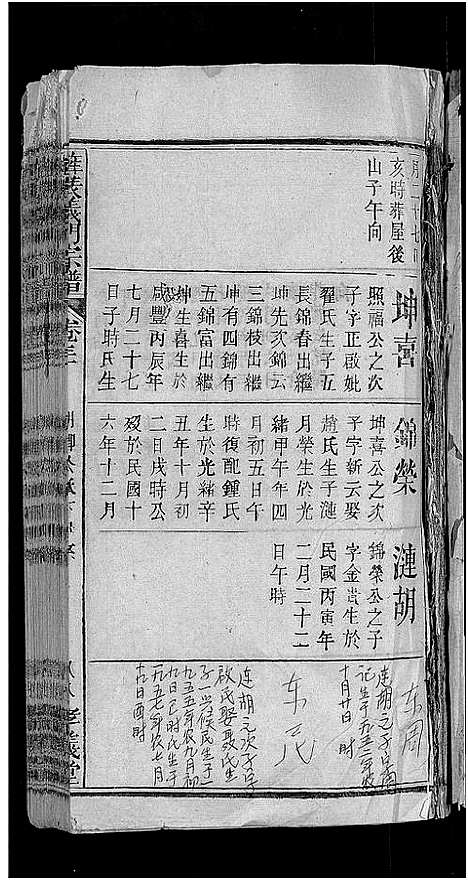 月二十七日
亥時葬屋後
山子午向
坤喜
照福公之次
子字正啟妣
翟氏生子五
長錦春出繼
坤先次錦云
三錦枝出繼
坤有四錦有
五錦富出繼
坤生喜生於
咸豐丙辰年
七月二十七
日子時氏生
錦榮
坤喜公之次
子字新云娶
趙氏生子漣
月榮生於光
緒甲午年四
月初五日午
時復配鍾氏
生於光緒辛
丑年十月初
二日戌時公
歿於民國十
六年十二月
漣胡
錦榮公之子
字金貴生於
民國丙寅年
二月二十二
日午時
东周
連胡之子
十月廿日 時
东民
连胡之次子字
啟民娶聂氏生
子一兴候民生于一
九五五年农九月初
九日巳时氏生于
一九五七年农七月
日酉時
義門宗譜
卷三
孝義堂